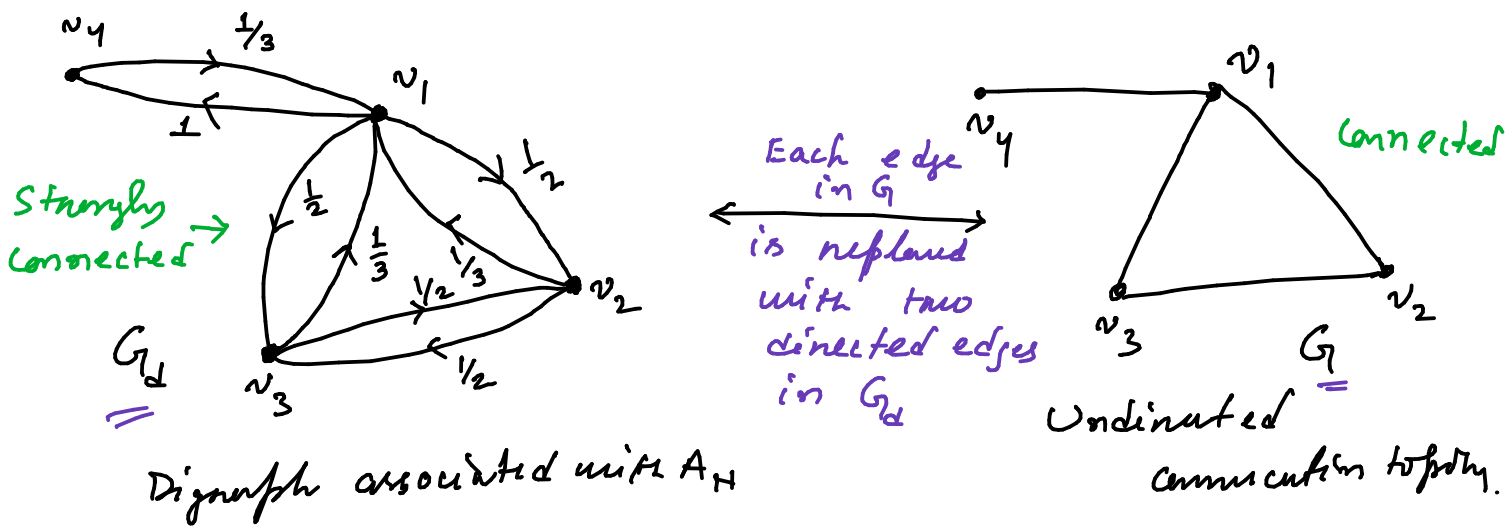 v4
1/3
v1
1
1/2
Strongly
connected
1/2
1/3
1/3
1/2
v2
1/2
v3
Gd
Digraph associated with AH
Each edge
in G
is replaced
with two
directed edges
in Gd
v1
v4
connected
v3
v2
G
Undirected
communication topology.